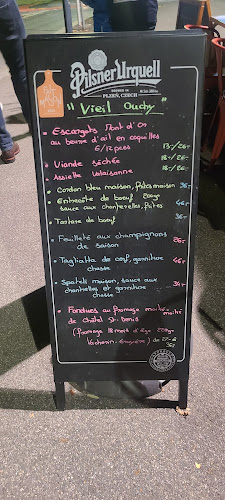 Pilsner Urquell
BREWED IN
PLZEŇ, CZECH
" Vieil Ouchy "
Escargots Mont d'Or
au beurre d'ail en coquilles
6/12 pces 13.-/26.-
Viande séchée 18.-/26.-
Assiette valaisanne 18.-/26.-
Cordon bleu maison, frites maison 36.-
Entrecôte de boeuf 200gr
sauce aux chanterelles, frites 46.-
Tartare de boeuf 36.-
Feuilleté aux champignons
de saison 26.-
Tagliata de cerf, garniture
chasse 46.-
Spätzli maison, sauce aux
chanterelles et garniture
chasse 34.-
Fondues au fromage moitié-
moitié
de Châtel St-Denis
(fromage 18 mois d'âge 200gr
Vacherin-Gruyère)